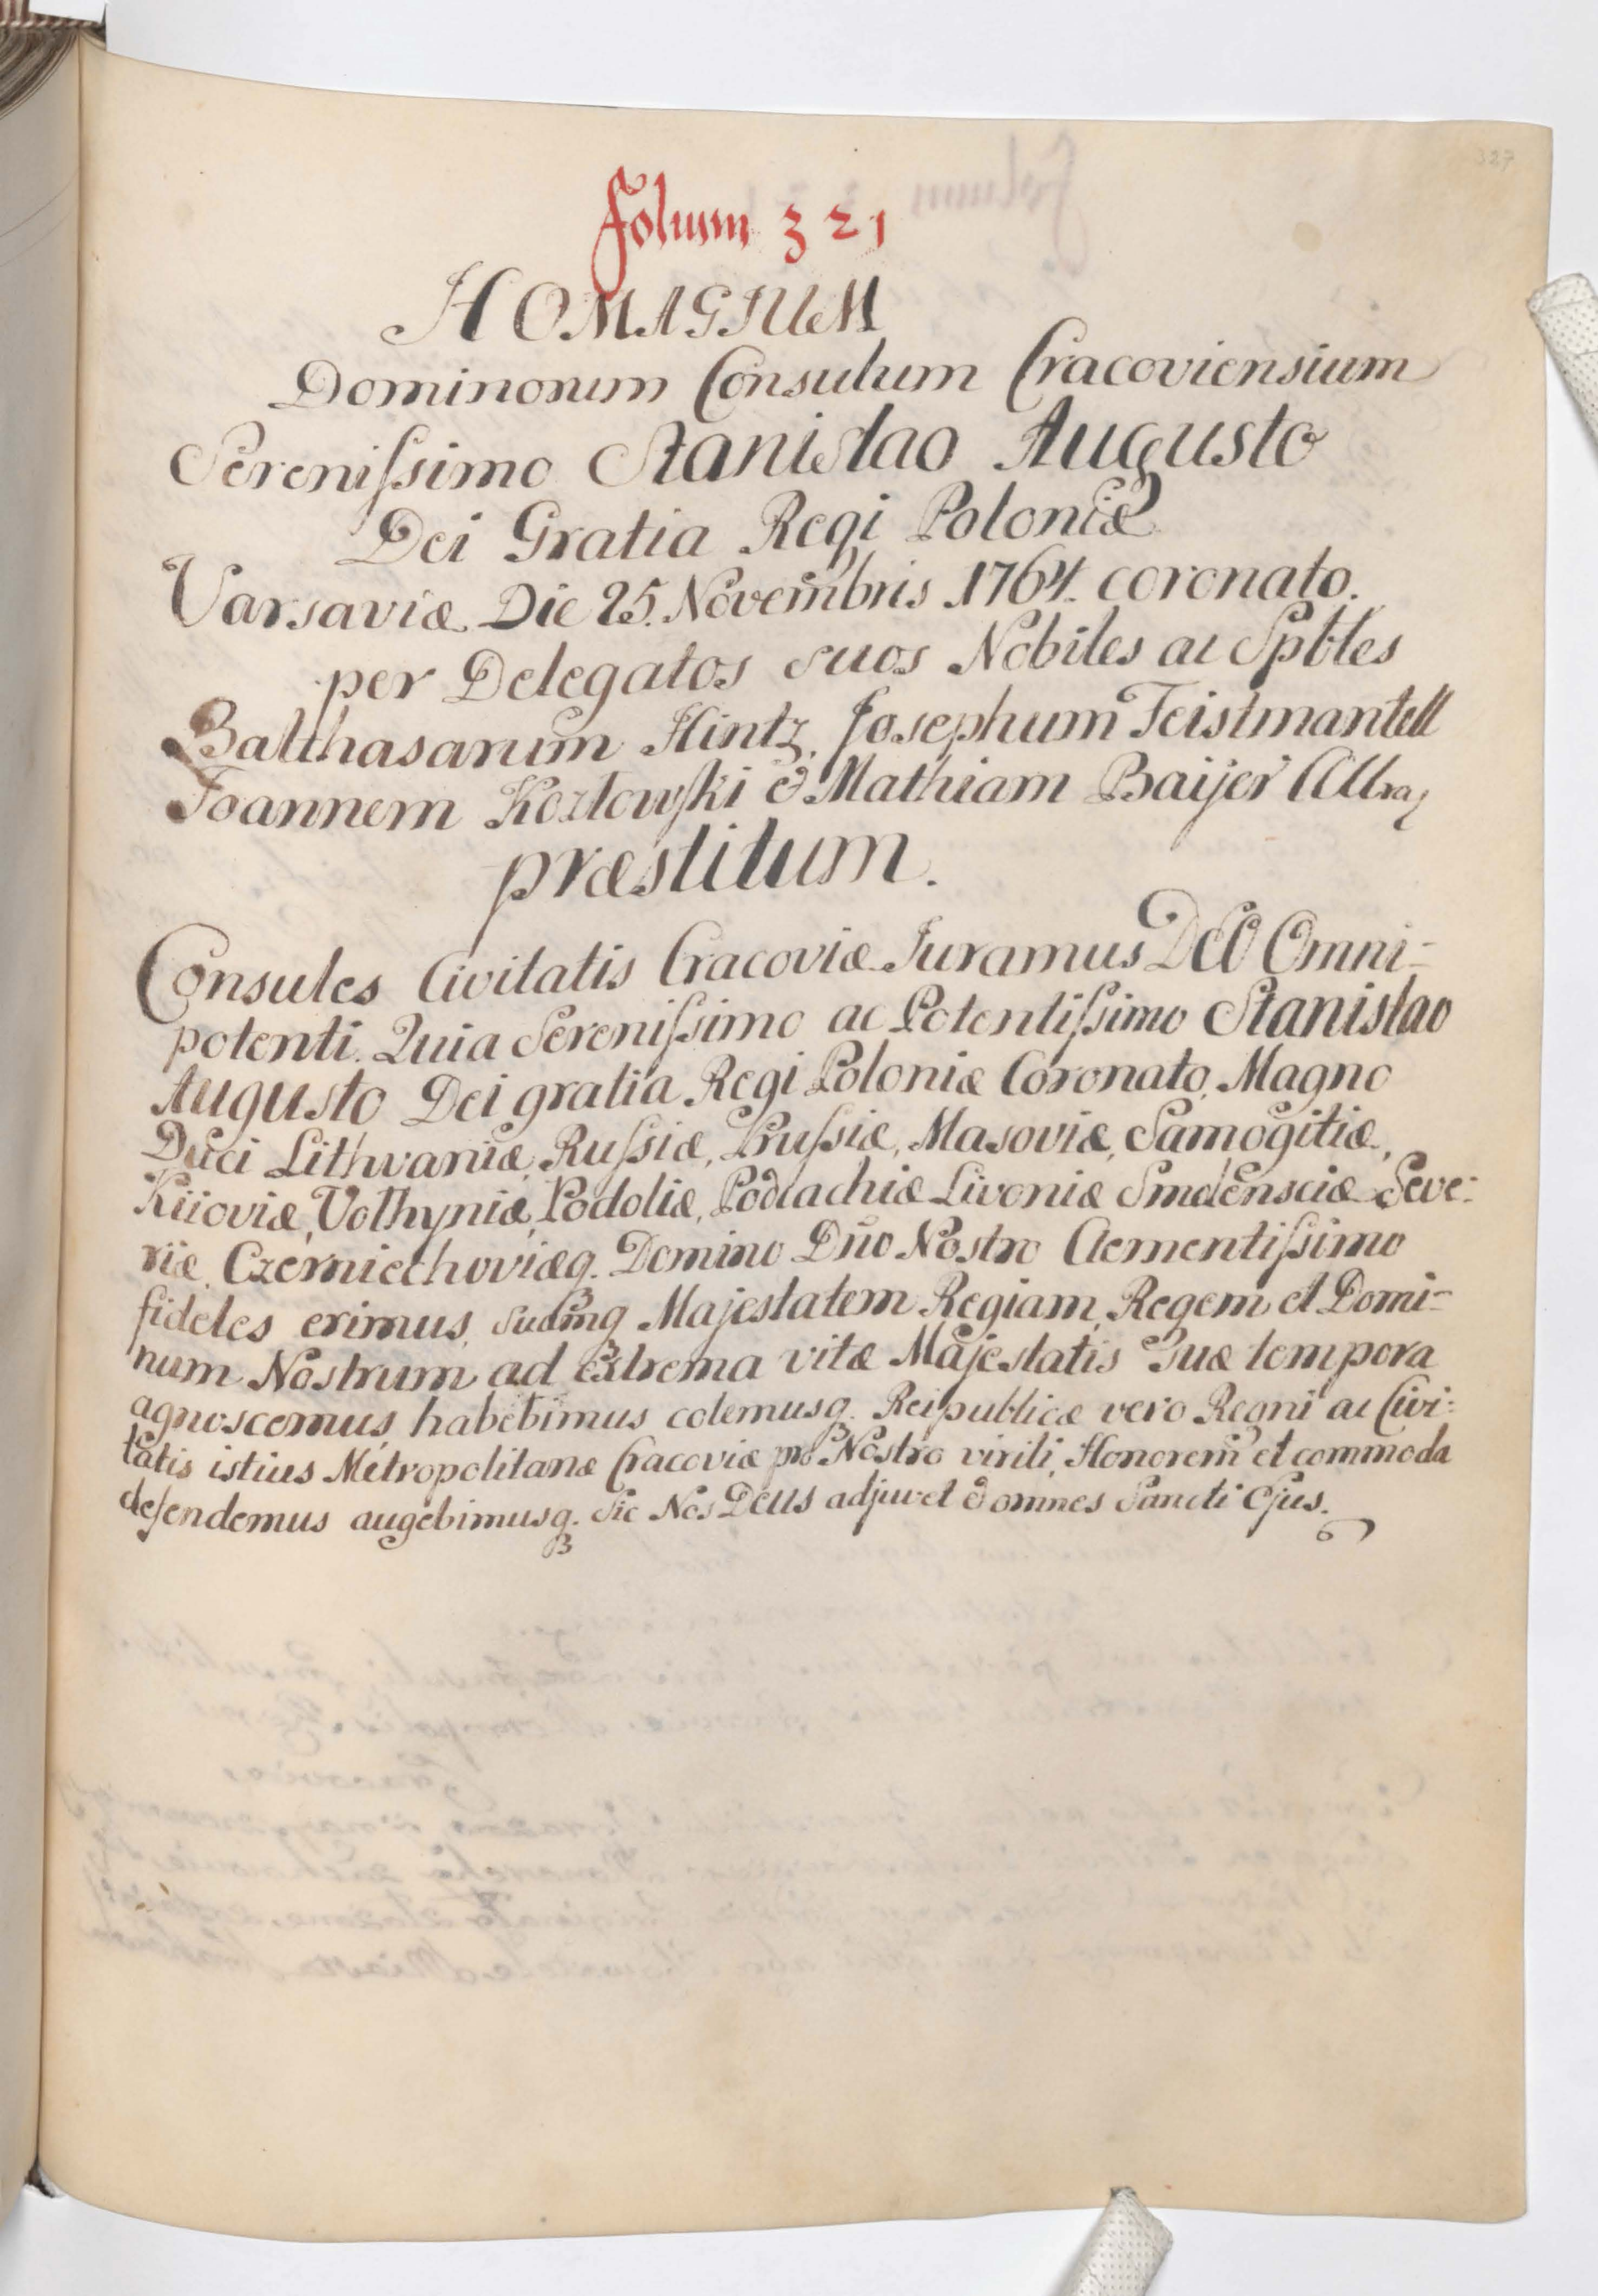 327
Folium 321
HOMAGIUM
Dominorum Consulum Cracoviensium
Serenissimo Stanislao Augusto
Dei Gratia Regi Poloniæ
Varsaviæ Die 25. Novembris 1764. coronato.
per Delegatos suos Nobiles ac Spbles
Balthasarum Hintz, Josephum Teistmantell
Joannem Kozłowski & Mathiam Baijer
præstitum.
Consules Civitatis Cracoviæ Juramus DEO Omni-
potenti. Quia Serenissimo ac Potentissimo Stanislao
Augusto Dei gratia Regi Poloniæ Coronato, Magno
Duci Lithvaniæ, Russiæ, Prussiæ, Masoviæ, Samogitiæ,
Kiioviæ, Volhyniæ, Podoliæ, Podlachiæ Livoniæ Smolensciæ Seve-
riæ Czerniechoviæq. Domino Dño Nostro Clementissimo
fideles erimus, suamq Majestatem Regiam, Regem et Domi-
num Nostrum ad extrema vitæ Majestatis suæ tempora
agnoscemus, habebimus colemusq. Reipublicæ vero Regni ac Civi-
tatis istius Metropolitanæ Cracoviæ pro Nostro virili, Honorem et commoda
defendemus augebimusq. Sic Nos DEUS adjuvet & omnes Sancti Ejus.